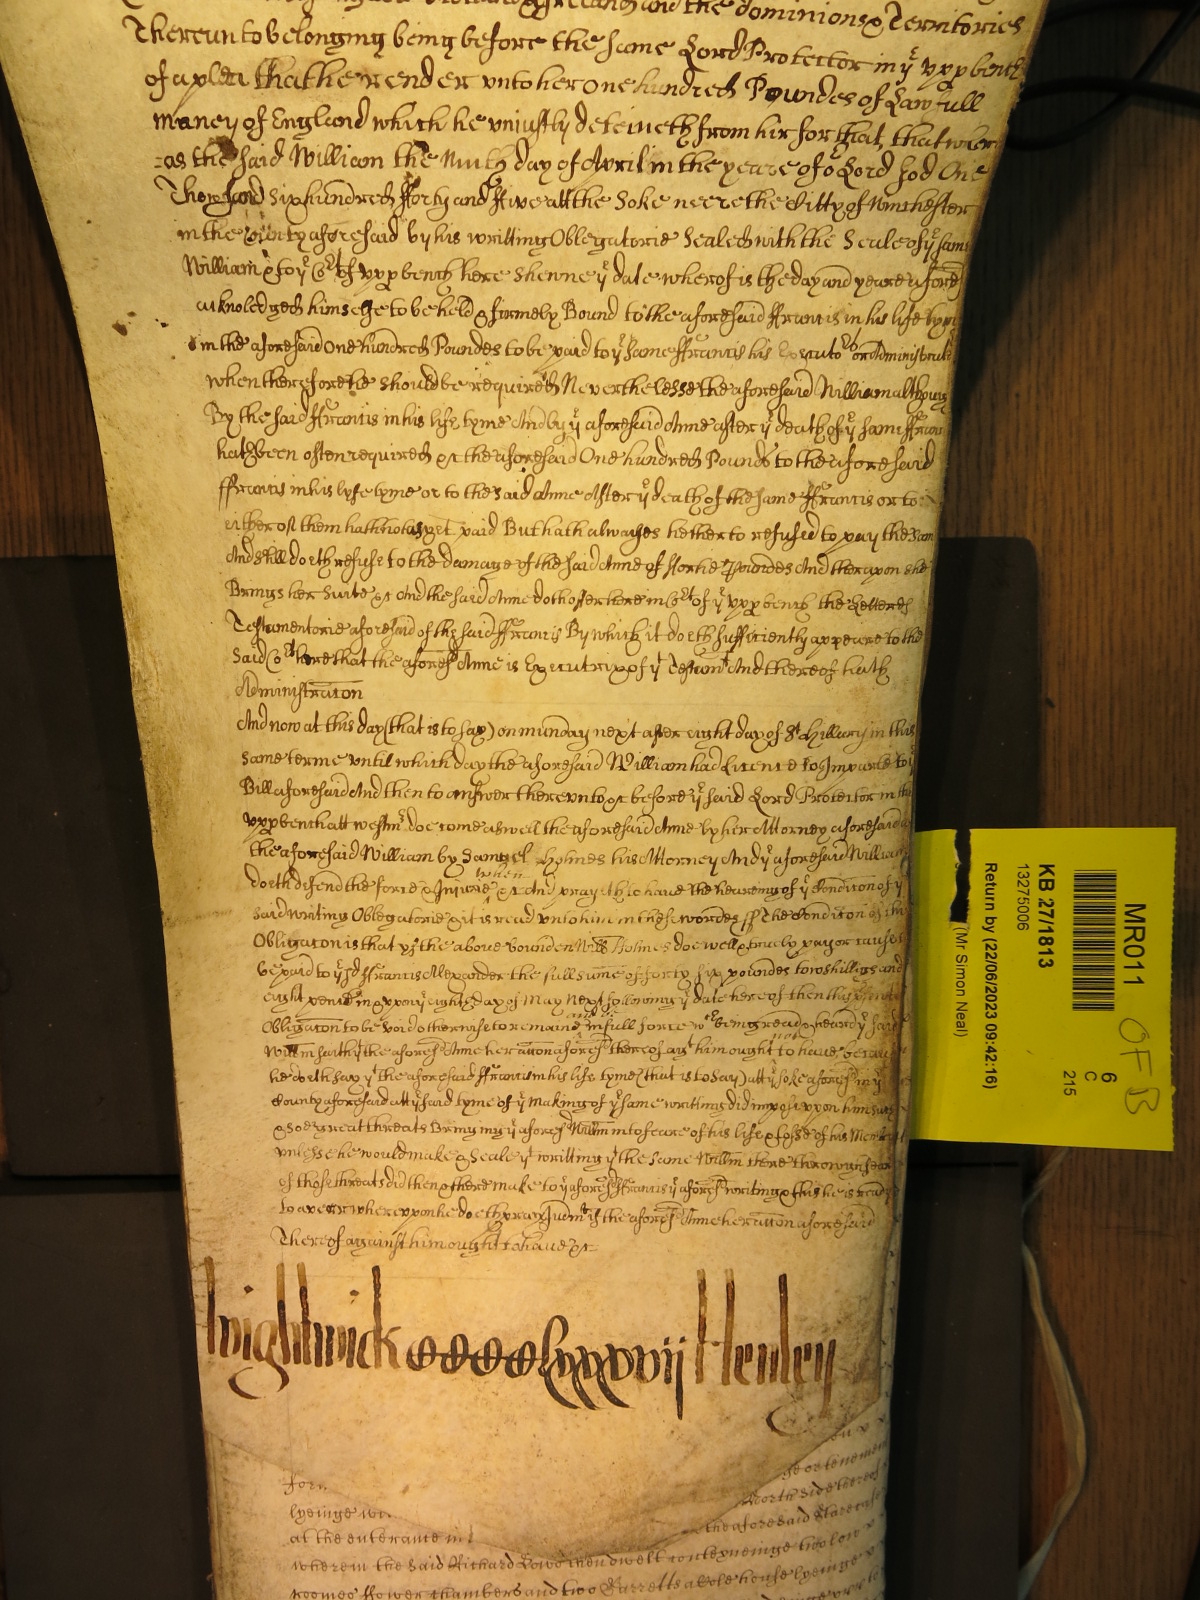 and the dominions & Territories
Thereunto belonging being before the same Lord Protector in yͤ upp bench
of a plea that he render unto her one hundred Poundes of Lawfull
money of England which he uniustly deteineth from hir for that that wher
=as the said William the Ninth day of Aprill in the yeare of oͬ Lord God One
Thousand six hundred fforty and ffive att the Soke neere the Citty of Winchester
in the County aforesaid by his writting Obligatorie Sealed with the Seale of yͤ same
William & to yͤ Coͬt of upp bench here shewne yͤ date wherof is the day and yeare afores
acknoledged himselfe to be held & firmely Bound to the aforesaid ffrancis in his life tyme
in the aforesaid One hundred Poundes to be paid to yͤ same ffrancis his Executoͬs or Administrat
when therefore he should be required Neverthelesse the aforesaid William although
By the said ffrancis in his life tyme And by yͤ aforesaid Anne after yͤ death of yͤ same ffran
hath been often required &c the aforesaid One hundred Pounds to the aforesaid
ffrancis in his lyfe tyme or to the said Anne After yͤ death of the same ffrancis or to
either of them hath not as yet paid But hath alwaies hetherto refused to pay the sam
And still doeth refuse to the damage of the said Anne of ffortie Poundes And therupon she
Brings her suite &c And the said Anne doth offer here in Coͬt of yͤ upp bench the Letteres
Testamentorie aforesaid of the said ffrancis By which it doeth sufficiently appeare to the
said Coͬt here that the afores Anne is Executrix of yͤ Testamᵗ And thereof hath
Administracon
And now at this day (that is to say) on munday next after eight day of Sᵗ Hillary in this
same terme untill which day the aforesaid William had Licence to Imparle to yͤ
Bill aforesaid And then to answer thereunto &c before yͤ said Lord Protector in the
upp bench att westmͬ doe come aswell the aforesaid Anne by her Attorney aforesaid as
the aforesaid William by Samuel Holmes his Attorney And yͤ aforesaid William
doth defend the force & Iniurie when &c And prayeth to have the heareing of yͤ Condicon of yͤ
said writing Obligatorie & it is read unto him in these wordes ss The Condicon of this
Obligacon is that yf the above bounden Willm Holmes doe well & truely pay or cause
be paid to yͤ sd ffrancis Alexander the full sume of forty six poundes two shillings and
eight pence in & upon yͤ eight Day of May Next following yͤ date hereof then this presente
Obligacon to be void otherwise to remaine and in full force wᶜʰ being read & heard yͤ said
Willm saith yᵗ the afores Anne her accon afores thereof agᵗ him ought not to have because
he doeth say yᵗ the aforesaid ffrancis in his life tyme (that is to say) att yͤ soke afores in yͤ
County aforesaid att yͤ said tyme of yͤ making of yͤ same writting did impose uppon him such
& soe great threats Bringing yͤ afores Willm into feare of his life & losse of his Members
unlesse he would make & Seale yͤ writting yᵗ the same Willm there through feare
of those threats did then & there make to yͤ afores ffrancis yͤ afores writing & this he is ready
to averr whereupon he doeth pray Judmᵗ if the afores Anne her accon aforesaid
Thereof against him ought to have &c
Wightwick cccclxxxxvij Henley
form
lyeinge
at the enterance in
wherein the said Richard Lowe then dwelt conteyneinge two low
roomes flower chambers and two Garretts a hole house lyeinge
North side thereof
the aforesaid
or tenemen
MR011
6
C
215
KB 27/1813
13275006
Return by (22/06/2023 09:42:16)
(Mr Simon Neal)
OFB